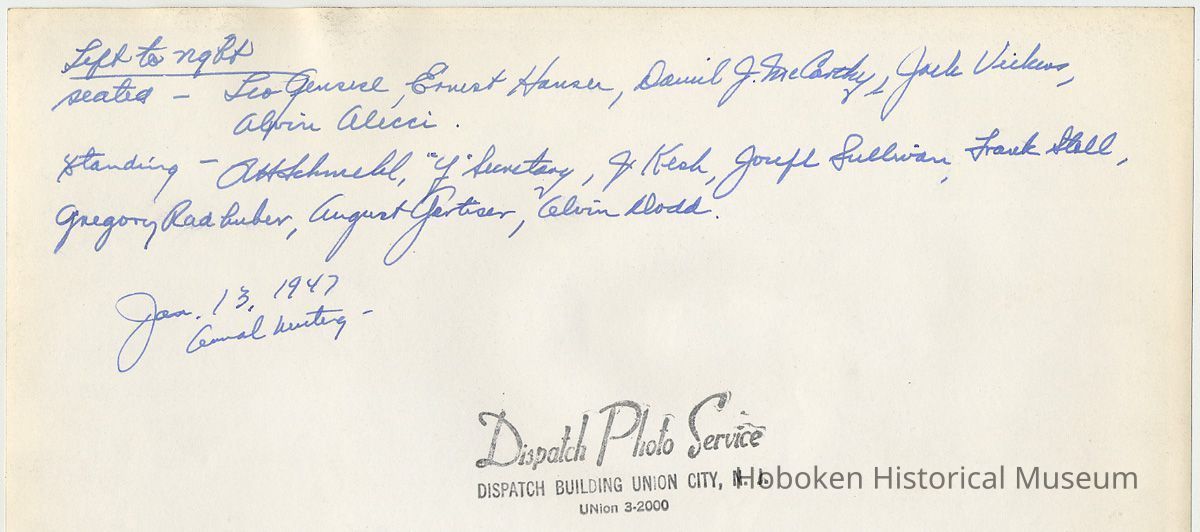 Left to right
seated - Leo Genese, Ernest Hauser, Daniel J. McCarthy, Jack Vickers,
Alvin Alicci.
Standing - Schmehl, "Y" Secretary, J Kesh, Joseph Sullivan, Frank Stoll,
Gregory Radhuber, August Gertiser, Alvin Dodd.
Jan. 13, 1947
Annual Meeting -
Dispatch Photo Service
DISPATCH BUILDING UNION CITY, N. J.
UNion 3-2000
Hoboken Historical Museum